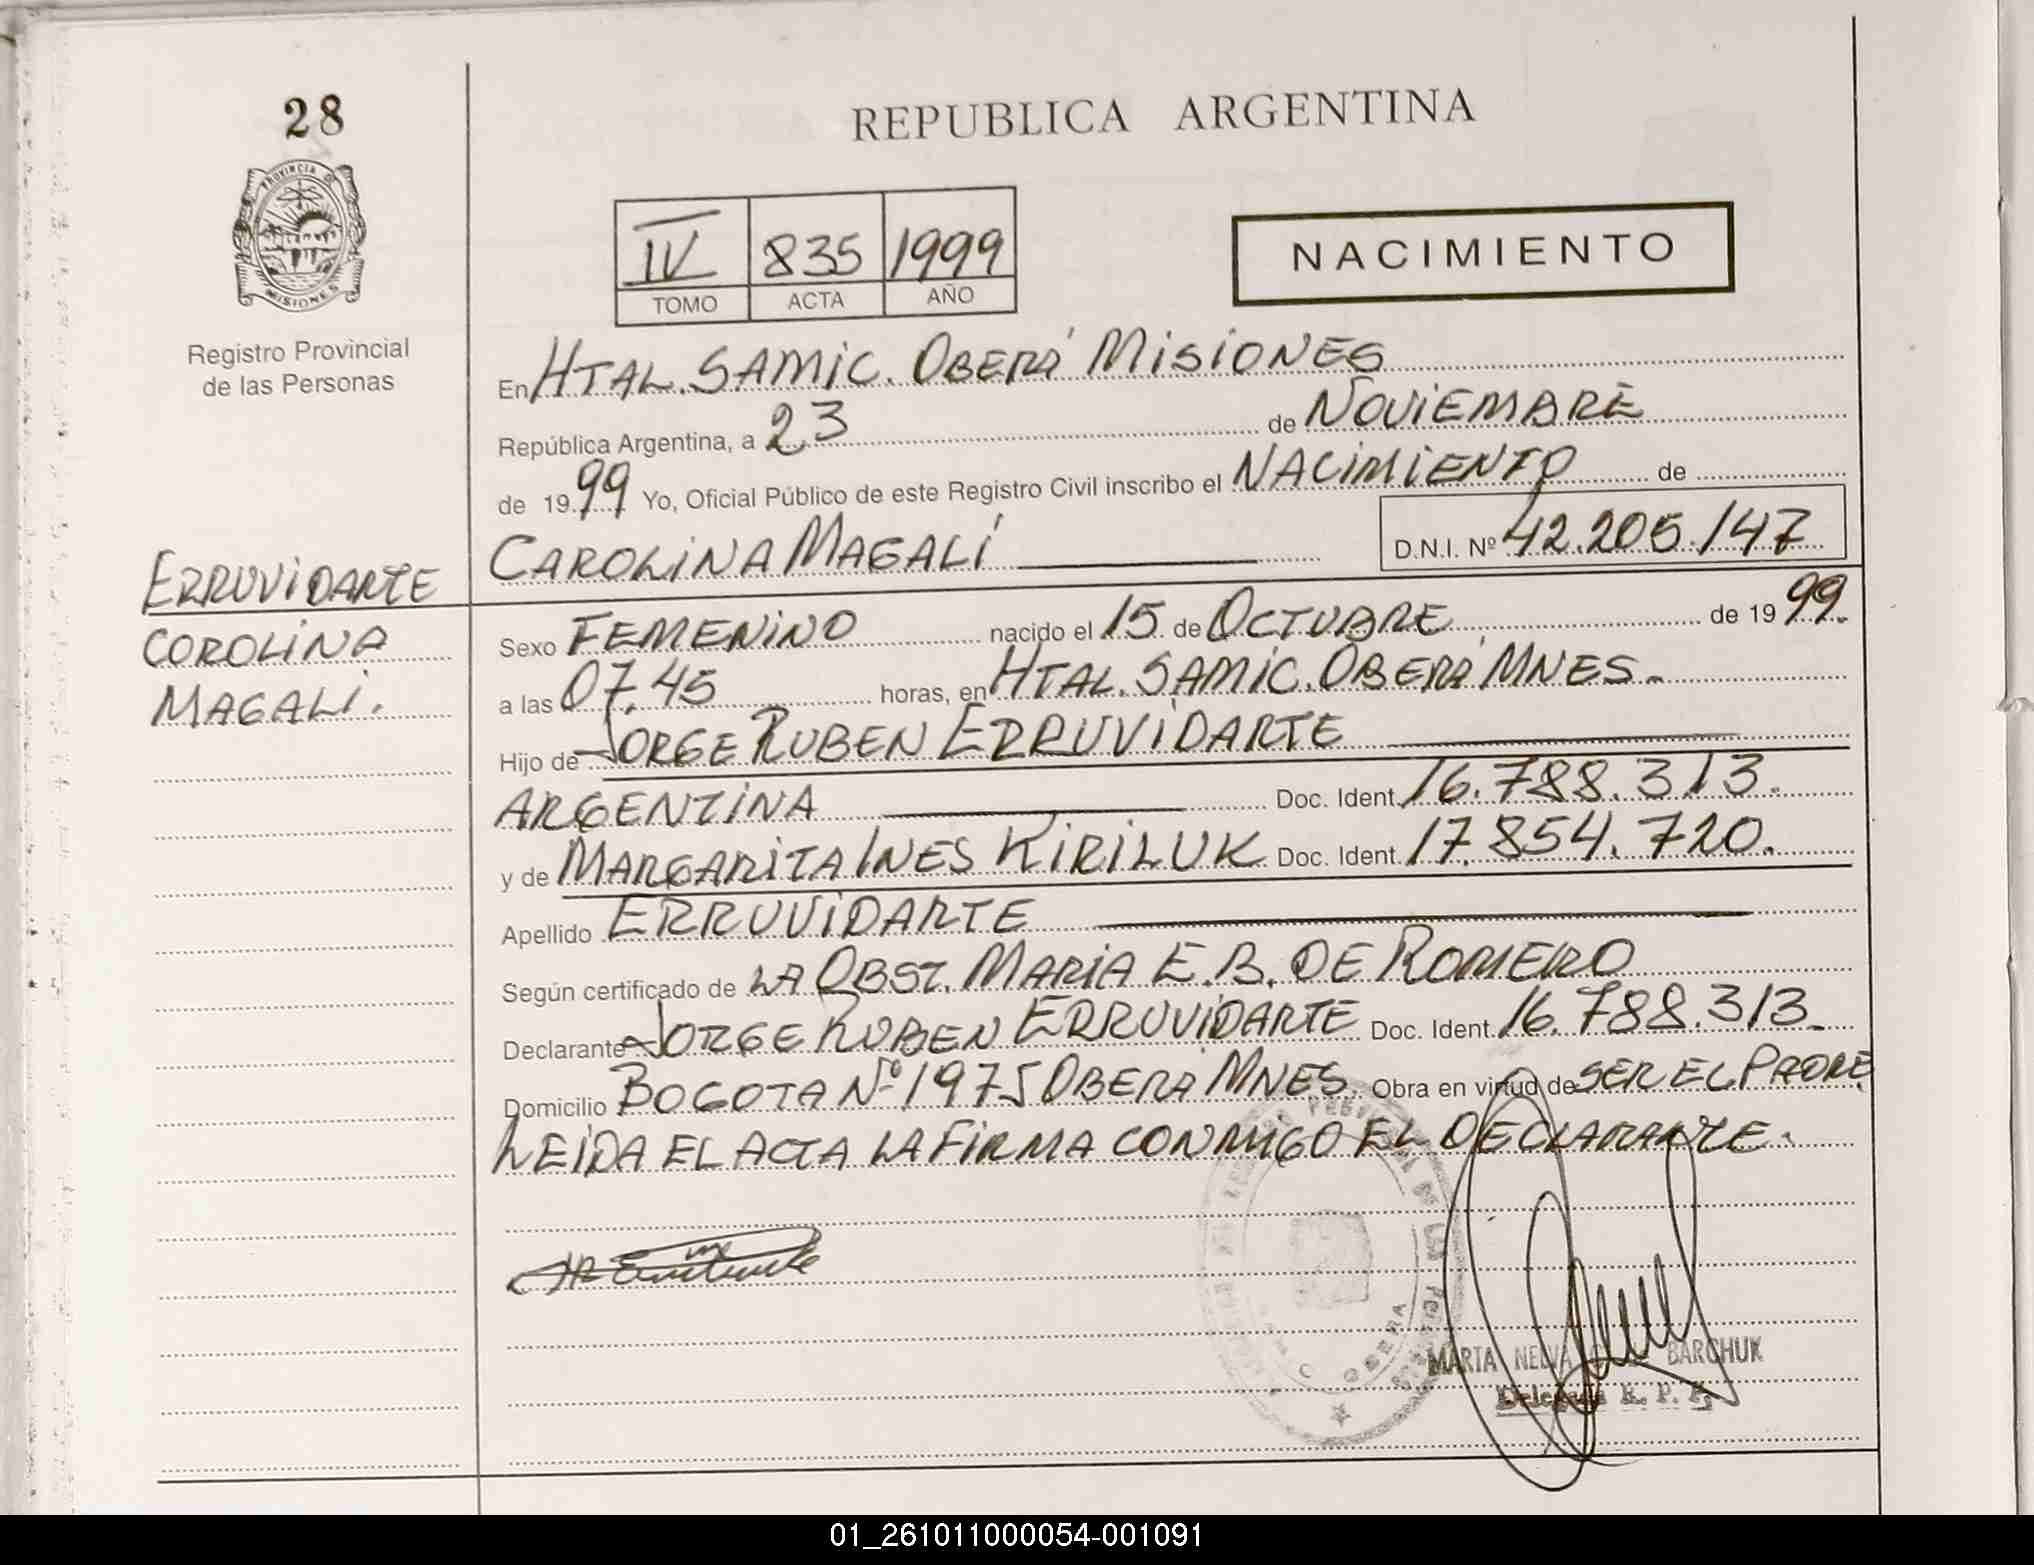 28
REPUBLICA ARGENTINA
PROVINCIA D
MISIONES
Registro Provincial
de las Personas
IV 835 1999
TOMO ACTA AÑO
NACIMIENTO
En HTAL. SAMIC. OBERÁ MISIONES
República Argentina, a 23 de NOVIEMBRE
de 1999 Yo, Oficial Público de este Registro Civil inscribo el NACIMIENTO de
CAROLINA MAGALÍ D.N.I. Nº 42.205.147
ERRUVIDARTE
COROLINA
MAGALI.
Sexo FEMENINO nacido el 15 de OCTUBRE de 1999.
a las 07.45 horas, en HTAL. SAMIC. OBERÁ MNES.
Hijo de JORGE RUBEN ERRUVIDARTE
ARGENTINA Doc. Ident. 16.788.313.
y de MARGARITA INES KIRILUK Doc. Ident. 17.854.720.
Apellido ERRUVIDARTE
Según certificado de LA OBST. MARIA E. B. DE ROMERO
Declarante JORGE RUBEN ERRUVIDARTE Doc. Ident. 16.788.313.
Domicilio BOGOTA Nº 1975 OBERÁ MNES. Obra en virtud de SER EL PADRE
LEIDA EL ACTA LA FIRMA CONMIGO EL DECLARANTE.
OBERA
MARTA NELVA BARCHUK
Delegada R. P. P.
01_261011000054-001091